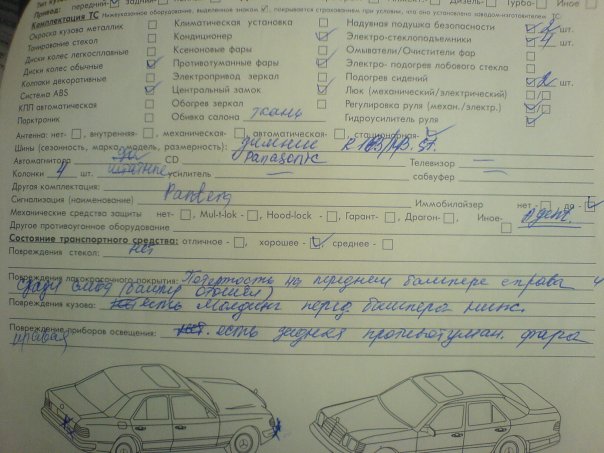 Привод: передний задний Дизель Турбо- Иное
Комплектация ТС Нижеуказанное оборудование, выделенное знаком покрывается страхованием при условии, что оно установлено заводом-изготовителем ТС:
Окраска кузова металлик Климатическая установка Надувная подушка безопасности 2 шт.
Тонирование стекол Кондиционер Электро-стеклоподъемники 4 шт.
Диски колес легкосплавные Ксеноновые фары Омыватели/Очистители фар
Диски колес обычные Противотуманные фары Электро- подогрев лобового стекла
Колпаки декоративные Электропривод зеркал Подогрев сидений 2 шт.
Система ABS Центральный замок Люк (механический/электрический)
КПП автоматическая Обогрев зеркал Регулировка руля (механ./электр.)
Парктроник Обивка салона ткань Гидроусилитель руля
Антенна: нет- , внутренняя- , механическая- , автоматическая- , стационарная-
Шины (сезонность, марка, модель, размерность): зимние R
Автомагнитола CD Panasonic Телевизор —
Колонки 4 шт. штатные усилитель — сабвуфер —
Другая комплектация:
Сигнализация (наименование) Pandera Иммобилайзер нет - , да -
Механические средства защиты нет- , Mul-t-lok - , Hood-lock - , Гарант- , Драгон- , Иное-
Другое противоугонное оборудование
Состояние транспортного средства: отличное - , хорошее - , среднее -
Повреждения стекол: нет
Повреждения лакокрасочного покрытия: Потертость на переднем бампере справа и
сзади слева
Повреждения кузова: нет есть молдинг перед. бампера ниж.
Повреждение приборов освещения: нет. есть задняя противотуман. фара
правая